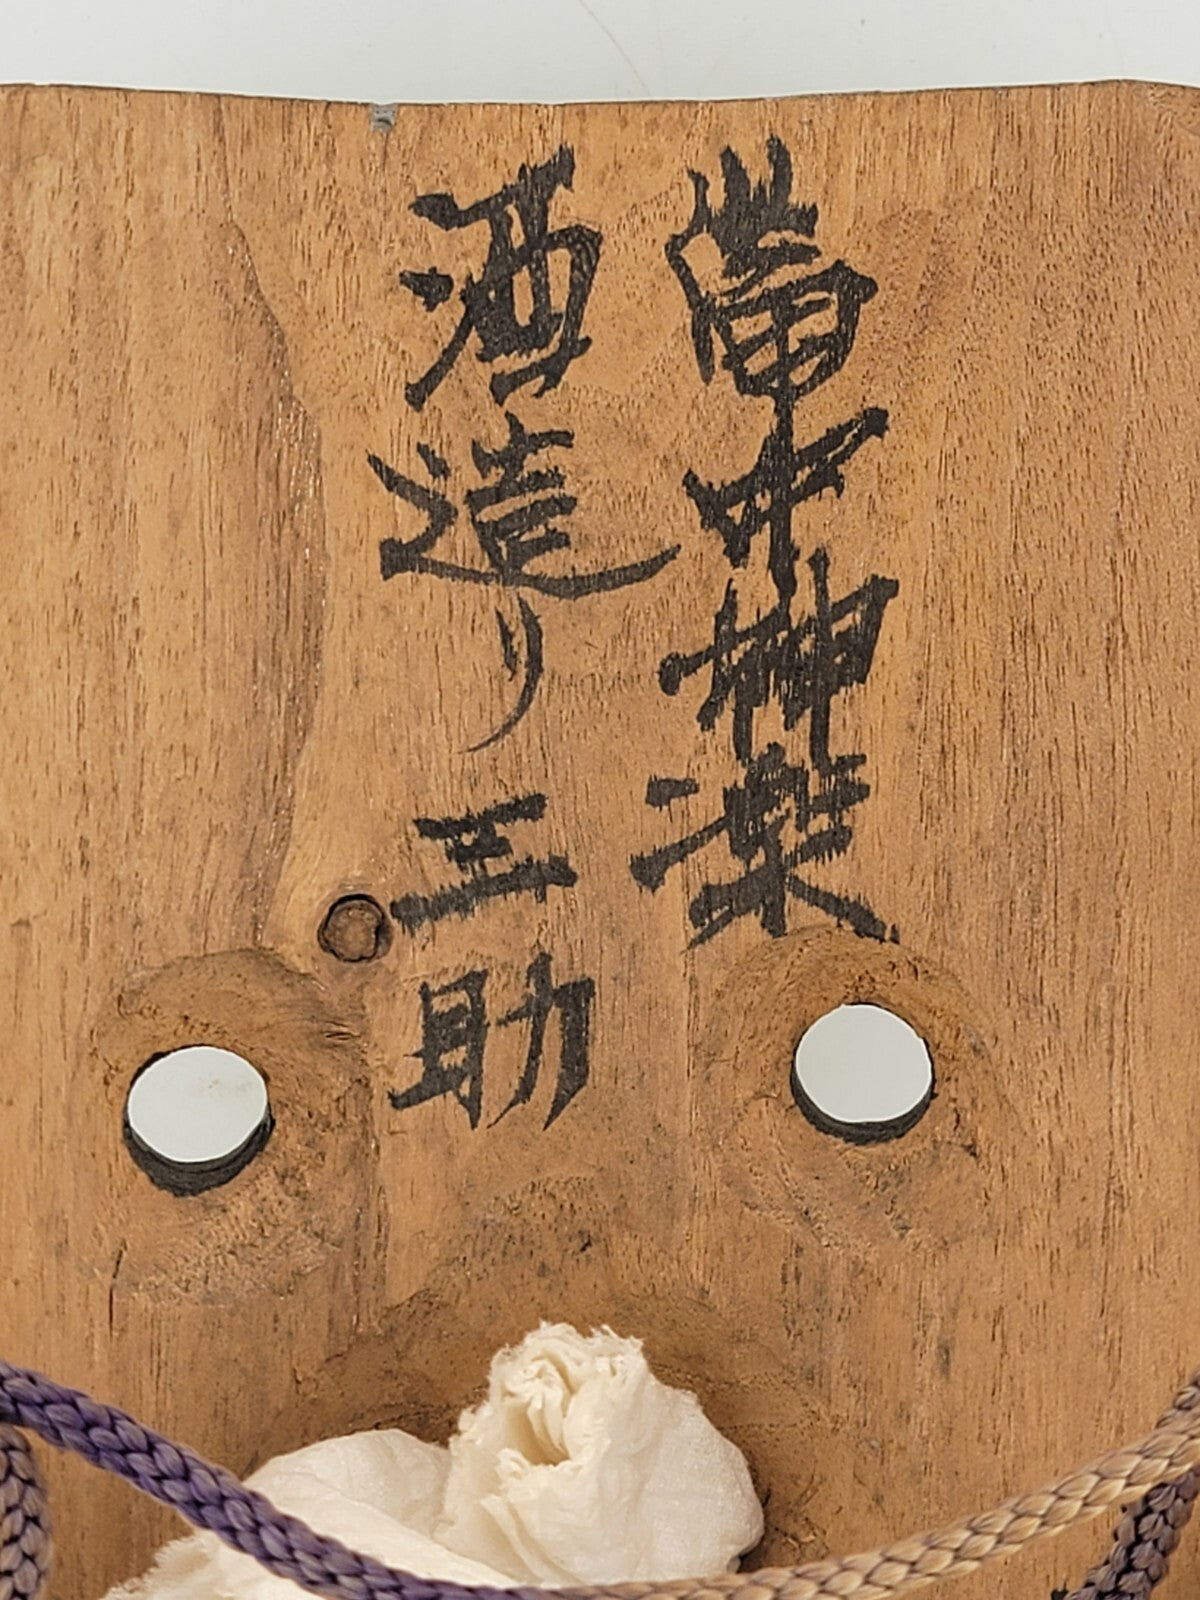 備中神楽
酒造り 五助